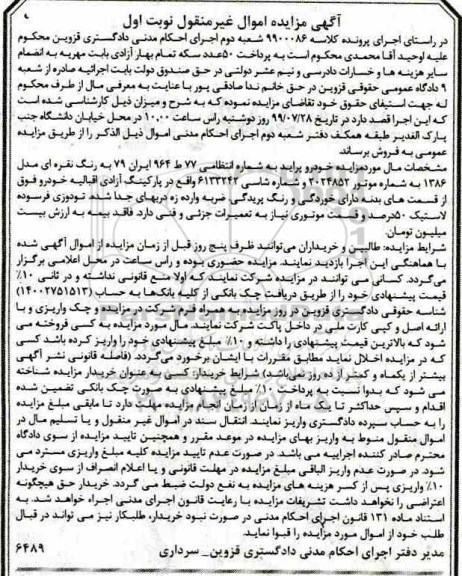 آگهی مزایده اموال غیرمنقول نوبت اول
در راستای اجرای پرونده کلاسه ۹۹۰۰۰۸۶ شعبه دوم اجرای احکام مدنی دادگستری قزوین محکوم
علیه اوحید آقا محمدی محکوم است به پرداخت ۵۰عدد سکه تمام بهار آزادی بابت مهریه به انضمام
سایر هزینه ها و خسارات دادرسی و نیم عشر دولتی در حق صندوق دولت بابت اجرائیه صادره از شعبه
۹ دادگاه عمومی حقوقی قزوین در حق خانم ندا صادقی پور با عنایت به معرفی مال از طرف محکوم
له جهت استیفای حقوق خود تقاضای مزایده نموده که به شرح و میزان ذیل کارشناسی شده است
که این اجرا قصد دارد در تاریخ ۹۹/۰۷/۲۸ روز دوشنبه راس ساعت ۱۰.۰۰ در محل خیابان دانشگاه جنب
پارک الغدیر طبقه همکف دفتر شعبه دوم اجرای احکام مدنی اموال ذیل الذکر را از طریق مزایده
عمومی به فروش برساند.
مشخصات مال موردمزایده خودرو پراید به شماره انتظامی ۷۷ ط ۹۶۴ ایران ۷۹ به رنگ نقره ای مدل
۱۳۸۶ به شماره موتور ۲۰۲۴۸۵۲ و شماره شاسی ۶۱۳۳۲۴۲ واقع در پارکینگ آزادی اقبالیه خودرو فوق
از قسمت های بدنه دارای خوردگی و رنگ پریدگی، ضربه وارده زه دربهای جدا شده. تودوزی فرسوده
لاستیک ۵۰درصد و قسمت موتوری نیاز به تعمیرات جزئی و فنی دارد. فاقد بیمه به ارزش بیست
میلیون تومان.
شرایط مزایده: طالبین و خریداران می‌توانند ظرف پنج روز قبل از زمان مزایده از اموال آگهی شده
با هماهنگی این اجرا بازدید نمایند. مزایده حضوری بوده و راس ساعت در محل اعلامی برگزار
می‌گردد. کسانی می توانند در مزایده شرکت نمایند که اولا منع قانونی نداشته و در ثانی ۱۰٪
قیمت پیشنهادی خود را از طریق دریافت چک بانکی از کلیه بانک‌ها به حساب (۱۴۰۰۲۷۵۱۵۱۳)
شناسه حقوقی دادگستری قزوین در روز مزایده به همراه فرم شرکت در مزایده و چک واریزی و با
ارائه اصل و کپی کارت ملی در داخل پاکت شرکت نمایند. مال مورد مزایده به کسی فروخته می
شود که بالاترین قیمت پیشنهادی را داشته و ۱۰٪ مبلغ پیشنهادی خود را واریز کرده باشد کسی
که در مزایده اخلال نماید مطابق مقررات با ایشان برخورد می‌گردد. (فاصله قانونی نشر آگهی
بیشتر از یکماه و کمتر از ده روز نمی‌باشد) شرایط خریدار: کسی به عنوان خریدار مزایده شناخته
می شود که بدوا نسبت به پرداخت ۱۰٪ مبلغ پیشنهادی به صورت چک بانکی تضمین شده
اقدام و سپس حداکثر تا یک ماه از زمان از زمان انجام مزایده مهلت دارد تا مابقی مبلغ مزایده
را به حساب سپرده دادگستری واریز نمایند. انتقال سند در اموال غیر منقول و یا تسلیم مال در
اموال منقول منوط به واریز بهای مزایده در موعد مقرر و همچنین تایید مزایده از سوی دادگاه
محترم صادر کننده اجراییه می باشد. در صورت عدم تایید مزایده کلیه مبلغ واریزی مسترد می
شود. در صورت عدم واریز الباقی مبلغ مزایده در مهلت قانونی و یا اعلام انصراف از سوی خریدار
۱۰٪ واریزی پس از کسر هزینه های مزایده به نفع دولت ضبط می گردد. خریدار حق هیچگونه
اعتراضی را نخواهد داشت تشریفات مزایده با رعایت قانون اجرای مدنی اجراء خواهد شد. به
استناد ماده ۱۳۱ قانون اجرای احکام مدنی در صورت نبود خریدار، طلبکار نیز می تواند در قبال
طلب خود از اموال مورد مزایده را قبول نماید.
مدیر دفتر اجرای احکام مدنی دادگستری قزوین_ سرداری
۶۴۸۹